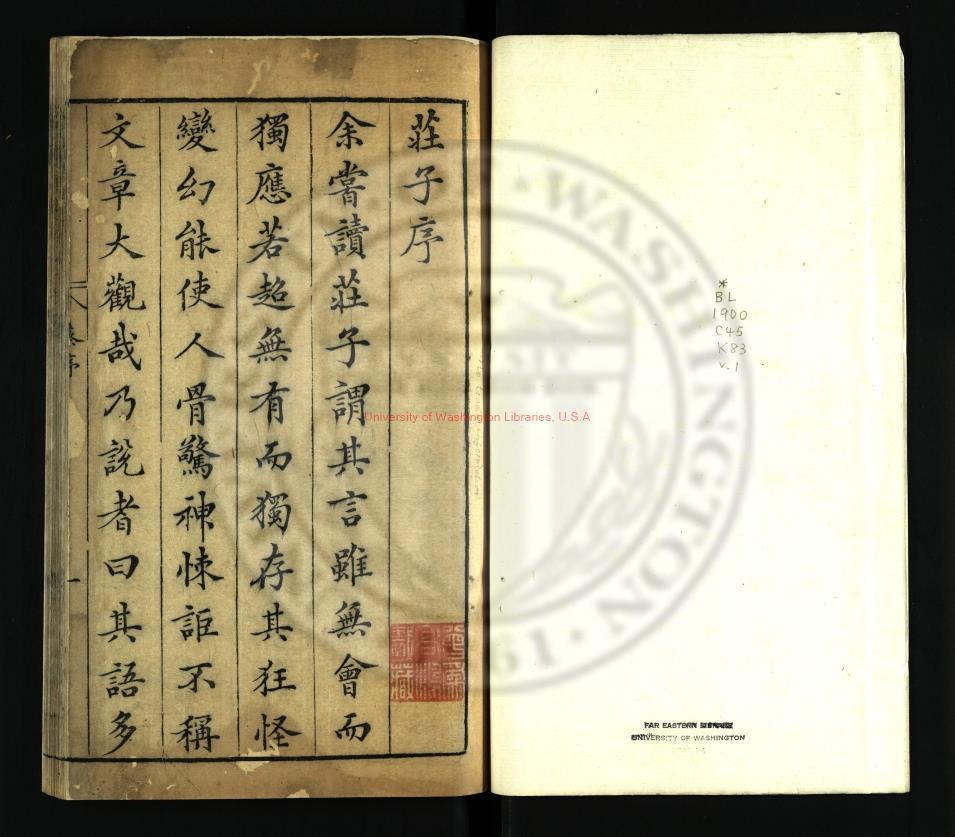 莊子序
余嘗讀莊子謂其言雖無會而
獨應若超無有而獨存其狂怪
變幻能使人骨驚神悚詎不稱
文章大觀哉乃說者曰其語多
卷序
一
University of Washington Libraries, U.S.A
WASHINGTON
1861
*
BL
1900
C45
K83
v.1
FAR EASTERN LIBRARY
UNIVERSITY OF WASHINGTON